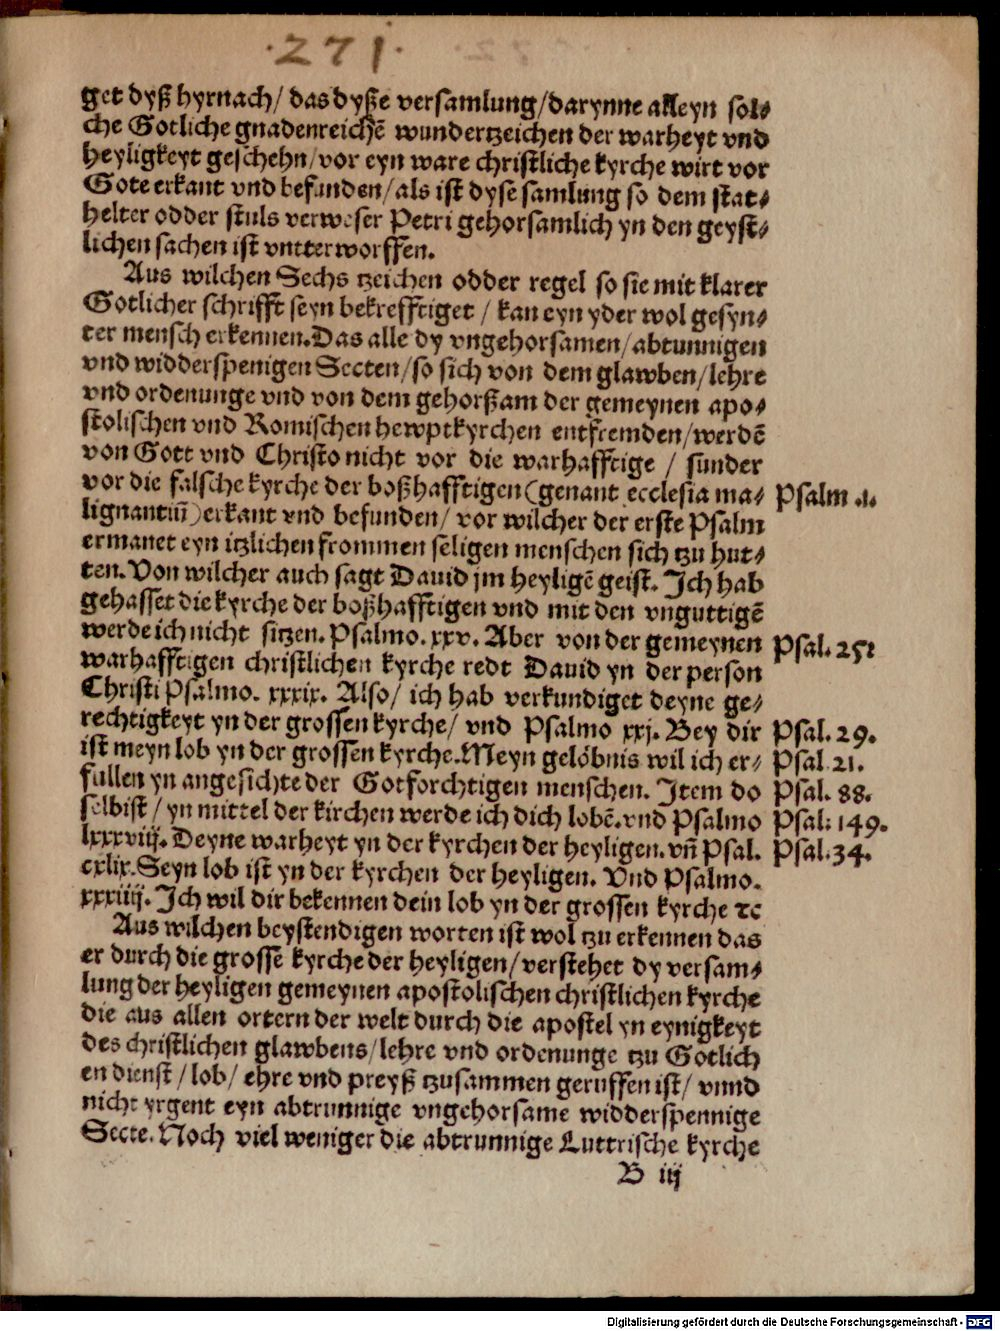 .271.
get dyß hyrnach/ das dyße versamlung/darynne alleyn sol⸗
che Gotliche gnadenreichē wundertzeichen der warheyt vnd
heyligkeyt geschehn/vor eyn ware christliche kyrche wirt vor
Gote erkant vnd befunden/als ist dyse samlung so dem stat⸗
helter odder stuls verweser Petri gehorsamlich yn den geyst⸗
lichen sachen ist vntterworffen.
Aus wilchen Sechs tzeichen odder regel so sie mit klarer
Gotlicher schrifft seyn bekrefftiget / kan eyn yder wol gesyn⸗
ter mensch erkennen.Das alle dy vngehorsamen/abtunnigen
vnd widderspenigen Secten/so sich von dem glawben/lehre
vnd ordenunge vnd von dem gehorßam der gemeynen apo⸗
stolischen vnd Romischen hewptkyrchen entfremden/werdē
von Gott vnd Christo nicht vor die warhafftige / sunder
vor die falsche kyrche der boßhafftigen(genant ecclesia ma⸗ Psalm .1.
lignantiū)erkant vnd befunden/ vor wilcher der erste Psalm
ermanet eyn itzlichen frommen seligen menschen sich tzu hut⸗
ten.Von wilcher auch sagt Dauid jm heyligē geist. Ich hab
gehasset die kyrche der boßhafftigen vnd mit den vnguttigē
werde ich nicht sitzen. Psalmo. xxv. Aber von der gemeynen Psal. 251
warhafftigen christlichen kyrche redt Dauid yn der person
Christi Psalmo. xxxix. Also/ ich hab verkundiget deyne ge⸗
rechtigkeyt yn der grossen kyrche/ vnd Psalmo xxj. Bey dir Psal. 29.
ist meyn lob yn der grossen kyrche.Meyn gelöbnis wil ich er⸗ Psal. 21.
fullen yn angesichte der Gotforchtigen menschen. Item do Psal. 88.
selbist/ yn mittel der kirchen werde ich dich lobē.vnd Psalmo Psal: 149.
lxxxviij. Deyne warheyt yn der kyrchen der heyligen.vñ Psal. Psal.34.
cxlix.Seyn lob ist yn der kyrchen der heyligen. Vnd Psalmo.
xxxiiij. Ich wil dir bekennen dein lob yn der grossen kyrche ꝛc
Aus wilchen beystendigen worten ist wol tzu erkennen das
er durch die grossē kyrche der heyligen/verstehet dy versam⸗
lung der heyligen gemeynen apostolischen christlichen kyrche
die aus allen ortern der welt durch die apostel yn eynigkeyt
des christlichen glawbens/lehre vnd ordenunge tzu Gotlich
en dienst/lob/ ehre vnd preyß tzusammen geruffen ist/ vnnd
nicht yrgent eyn abtrunnige vngehorsame widderspennige
Secte.Noch viel weniger die abtrunnige Luttrische kyrche
B iij
Digitalisierung gefördert durch die Deutsche Forschungsgemeinschaft - DFG